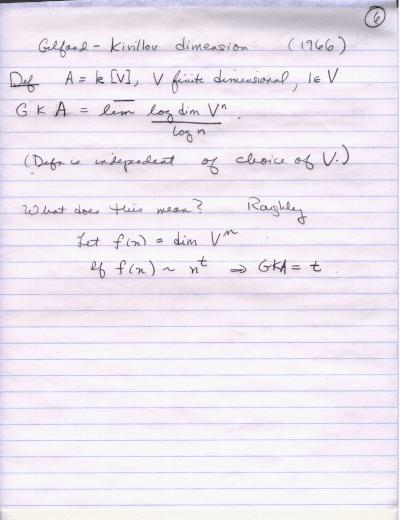 6
Gelfand - Kirillov dimension (1966)
Def A = k[V], V finite dimensional, 1 ∈ V
GK A = lim̅ log dim Vⁿ / log n.
(Defn is independent of choice of V.)
What does this mean? Roughly
Let f(n) = dim Vⁿ
If f(n) ~ nᵗ ⇒ GKA = t